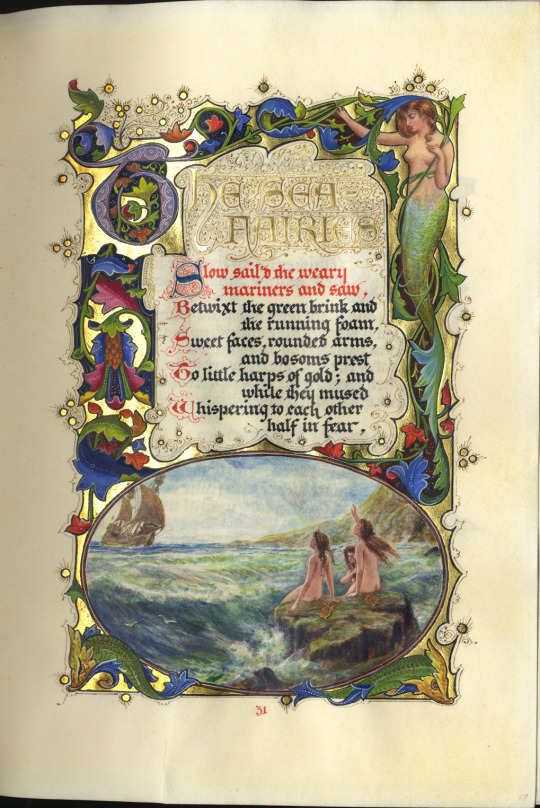 THE SEA-
FAIRIES
Slow sail'd the weary
mariners and saw,
Betwixt the green brink and
the running foam,
Sweet faces, rounded arms,
and bosoms prest
To little harps of gold; and
while they mused
Whispering to each other
half in fear,
31